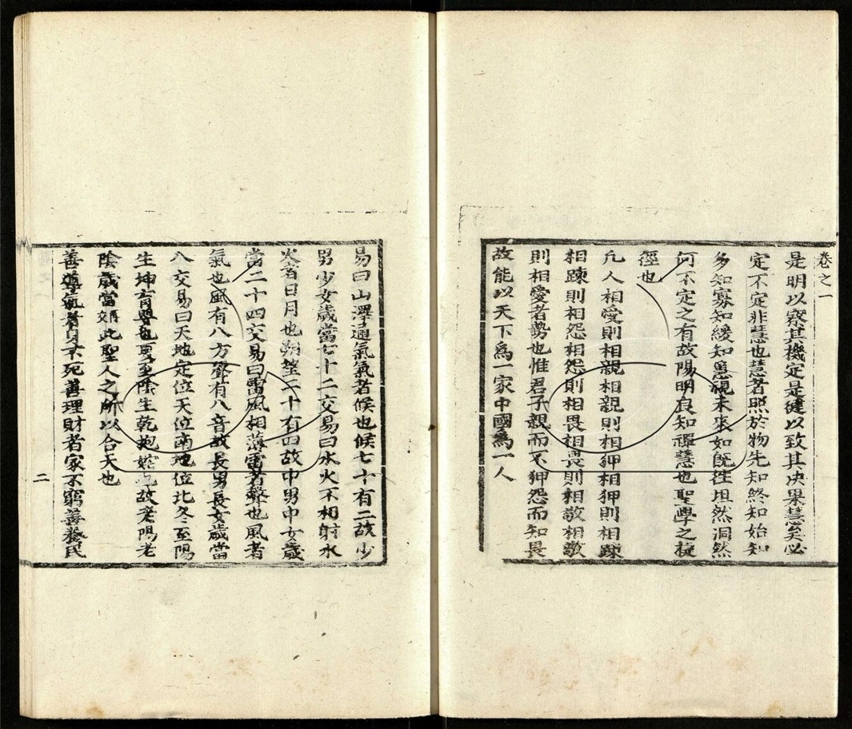 卷之一
是明以察其機定是健以致其决果慧矣必
定不定非慧也慧者照於物先知終知始知
多知寡知緩知急視未來如既徃坦然洞然
何不定之有故陽明良知禪慧也聖學之
徑也
凡人相愛則相親相親則相狎相狎則相踈
相踈則相怨相怨則相畏相畏則相敬相敬
則相愛者勢也惟君子親而不狎怨而知畏
故能以天下爲一家中國爲一人
易曰山澤通氣氣者候也候七十有二故少
男少女歲當七十二交易曰水火不相射水
火者日月也朔望二十有四故中男中女歲
當二十四交易曰雷風相薄雷者聲也風者
氣也風有八方聲有八音故長男長女歲當
八交易曰天地定位天位南地位北冬至陽
生坤育
陰歲當 此聖人之所以合天也
善 氣者 不死善理財者家不窮善養民
二